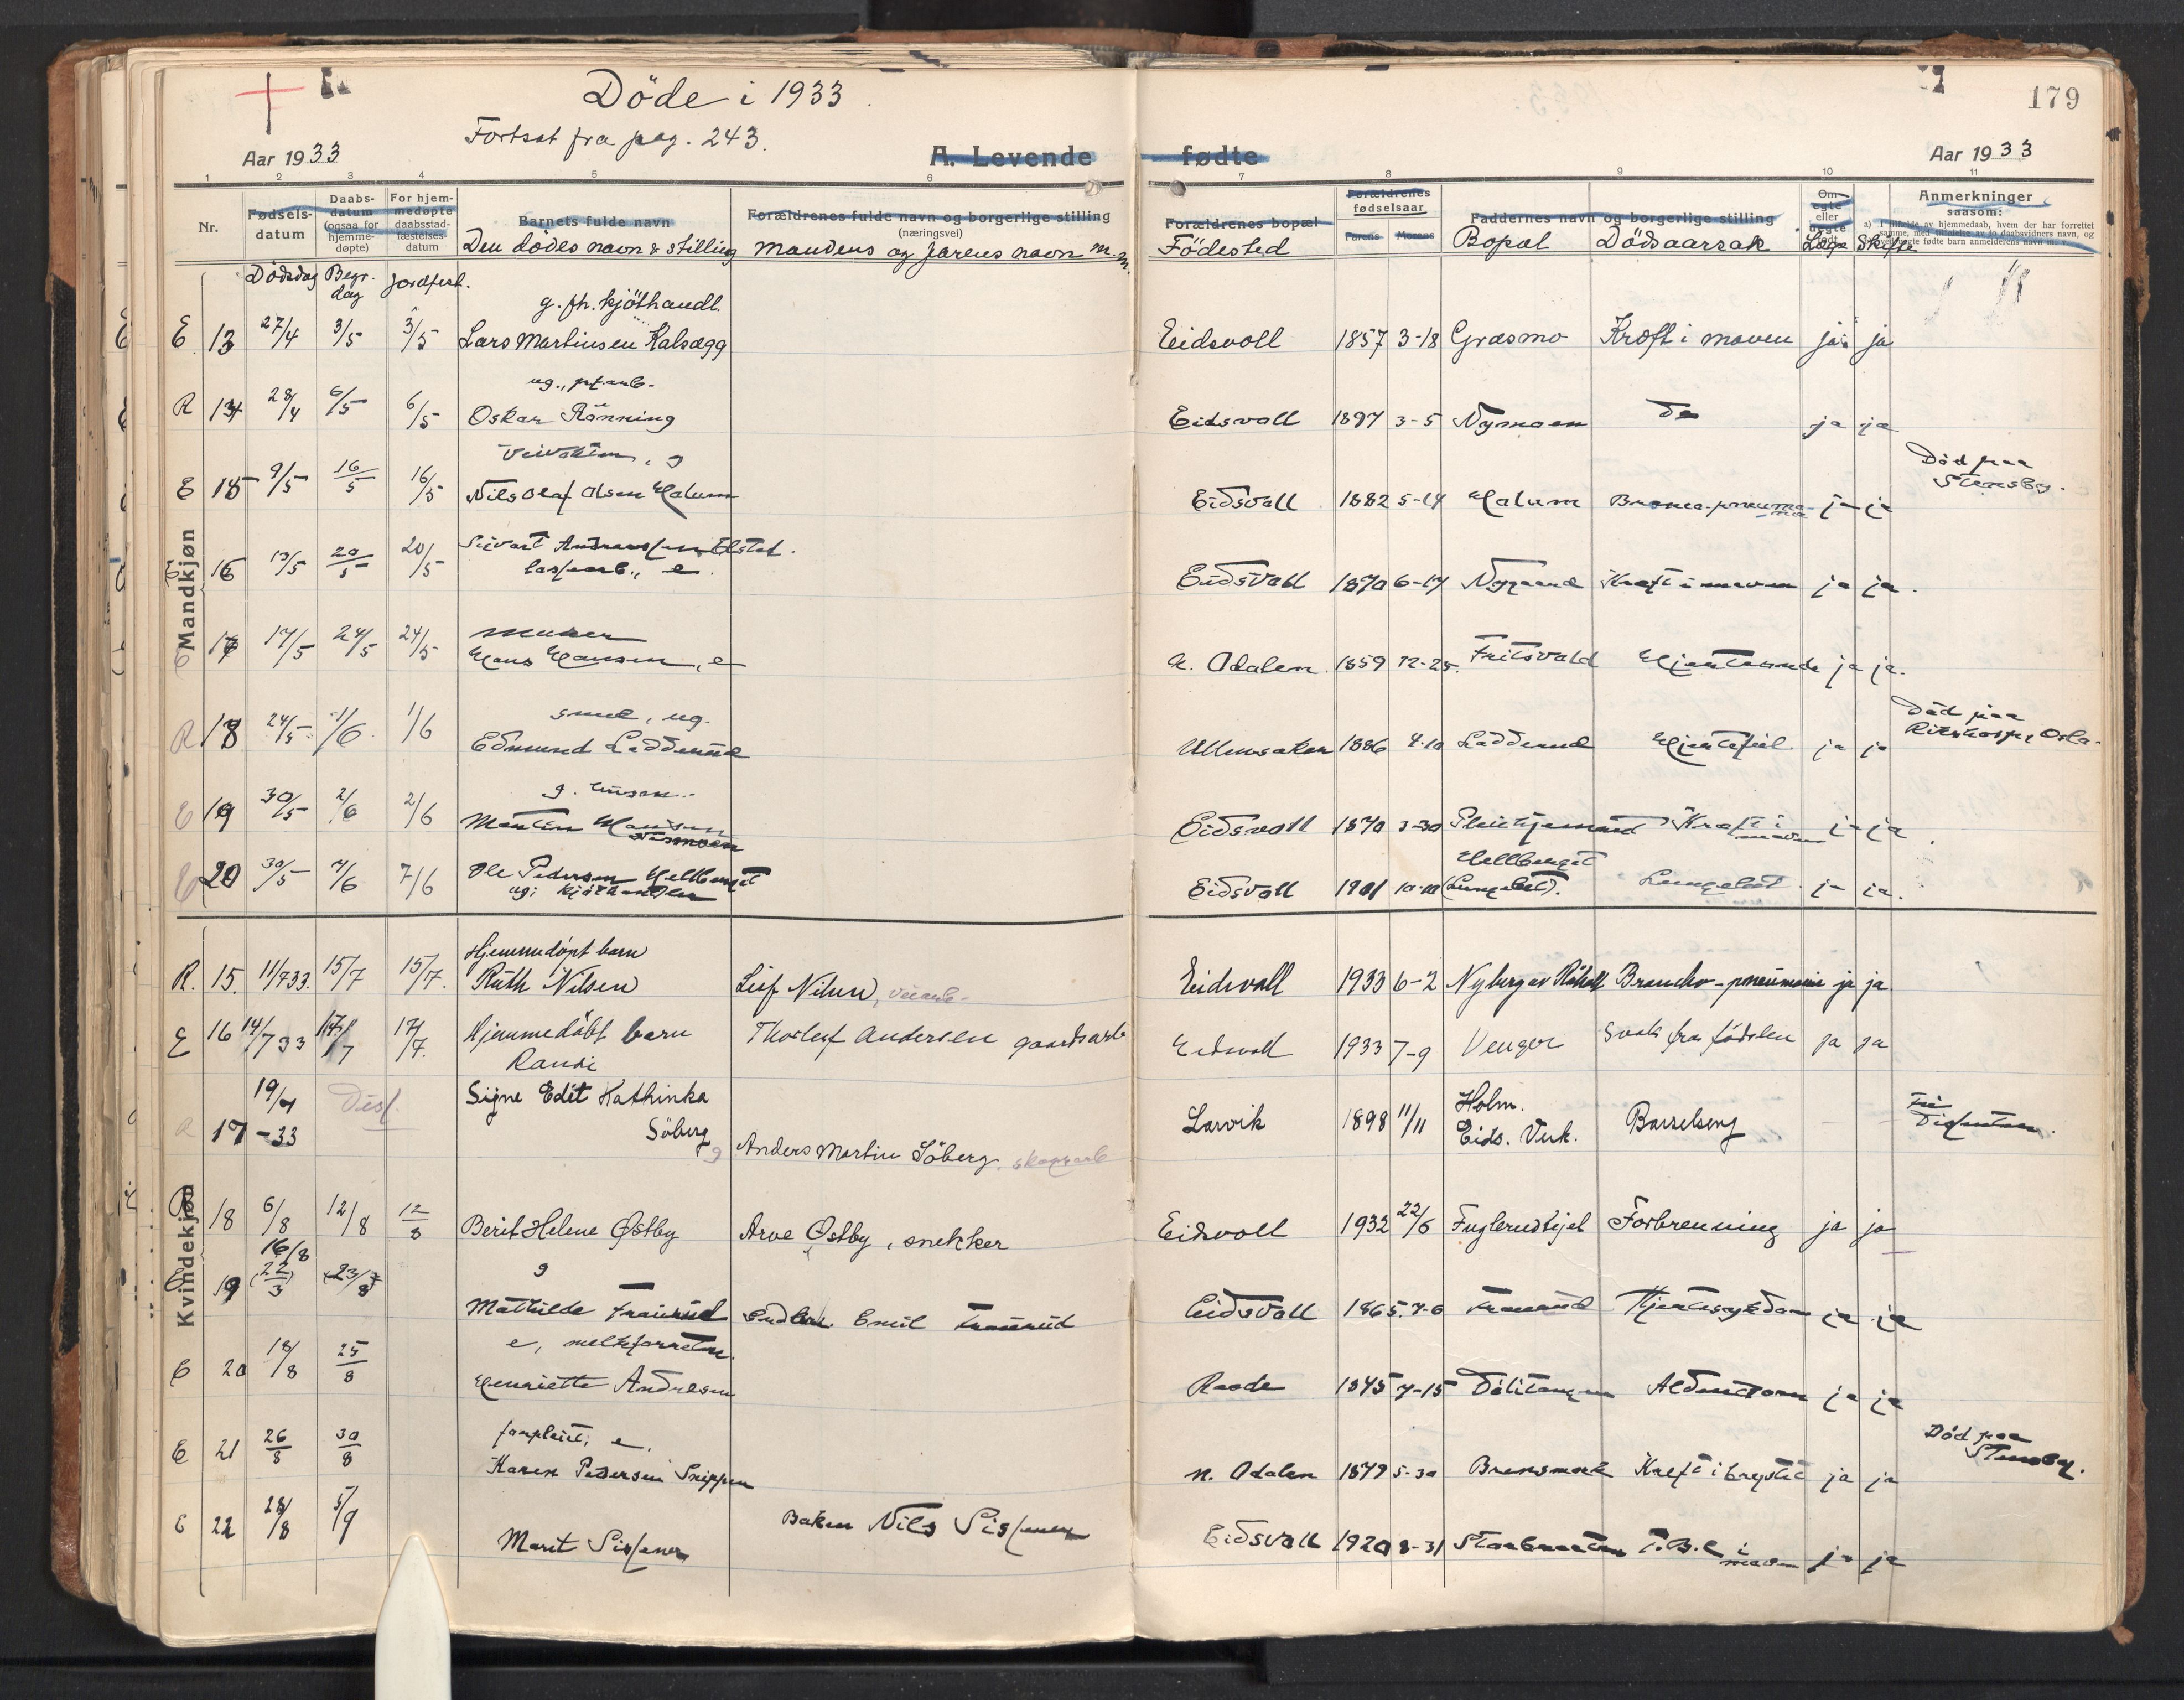 Döde i 1933
Fortsat fra pag. 243.
179
Aar 1933
A. Levende fødte
Aar 1933
1 2 3 4 5 6 7 8 9 10 11
Nr. Fødselsdatum Daabsdatum (ogsaa for hjemmedøpte) For hjemmedøpte daabsstadfæstelsesdatum Barnets fulde navn Forældrenes fulde navn og borgerlige stilling (næringsvei) Forældrenes bopæl Forældrenes fødselsaar Farens Morens Faddernes navn og borgerlige stilling Om egte eller uegte født Anmerkninger saasom:
Dödsdag Begr. dag Jordfest. Den dödes navn & stilling Mandens og farens navn m.m. Födested Bopæl Dödsaarsak Læge Skifte
Mandkjøn
g. fh. kjöthandl.
E 13 27/4 3/5 3/5 Lars Martinsen Kalsægg Eidsvoll 1857 3-18 Græsmo Kræft i maven ja ja
ug.,
R 14 28/4 6/5 6/5 Oskar Rönning Eidsvoll 1897 3-5 Nymoen do ja ja
g
E 15 9/5 16/5 16/5 Nils Olaf Olsen Halum Eidsvoll 1882 5-14 Halum ja ja Död paa Stensby.
E 16 13/5 20/5 20/5 Sivert Andreassen Elstad. Eidsvoll 1870 6-17 Nygaard Kræft i maven ja ja.
e.
Murer
E 17 17/5 24/5 24/5 Hans Hansen, e N. Odalen 1859 12-25. Fritsvold ja ja.
smed, ug.
R 18 24/5 1/6 1/6 Edmund Ladderud Ullensaker 1886 4-10 Ladderud Hjertefeil ja ja Död paa Rikshosp. Oslo.
E 19 30/5 2/6 2/6 Martin Hansen Eidsvoll 1870 3-30 Pleiehjemmet Kræft i maven ja ja
E 20 30/5 7/6 7/6 Ole Pedersen Hellberget Eidsvoll 1901 10-10 Hellberget ja ja.
ug; kjöthandler
Kvindekjøn
Hjemmedöpt barn
R. 15. 11/7 33. 15/7 15/7. Ruth Nilsen Leif Nilsen, veiarb. Eidsvoll 1933 6-2 Nyberg av Råholt Broncho-pneumoni ja ja
E 16 14/7 33 17/7 17/7. Hjemmedöbt barn Thorleif Andersen gaardsarb Eidsvoll 1933 7-9 Venger Svak fra födslen ja ja
Randi
R 17 19/7-33 Diss. Signe Edit Kathinka Söberg g Anders Martin Söberg Larvik 1898 11/11 Holm. Eids. Verk. Barselseng - - Fri Dissenter.
R 18 6/8 12/8 12/8 Berit Helene Østby Arve Østby, snekker Eidsvoll 1932 22/6 Forbrenning ja ja
g
E 19 16/8 (22/3) (23/8) Mathilde Traurud Emil Traurud Eidsvoll 1865 7-6 Traurud Hjertesygdom ja ja
e,
E 20 18/8 25/8 Henriette Andresen Raade 1845 7-15 Dölitangen Alderdom ja ja
e.
E 21 26/8 30/8 Karen Pedersen Snippen N. Odalen 1879 5-30 Brensmork Kræft i brystet ja ja Död paa Stensby.
E 22 28/8 5/9 Marit Sissener Baker Nils Sissener Eidsvoll 1920 3-31 T.B.C i maven ja ja